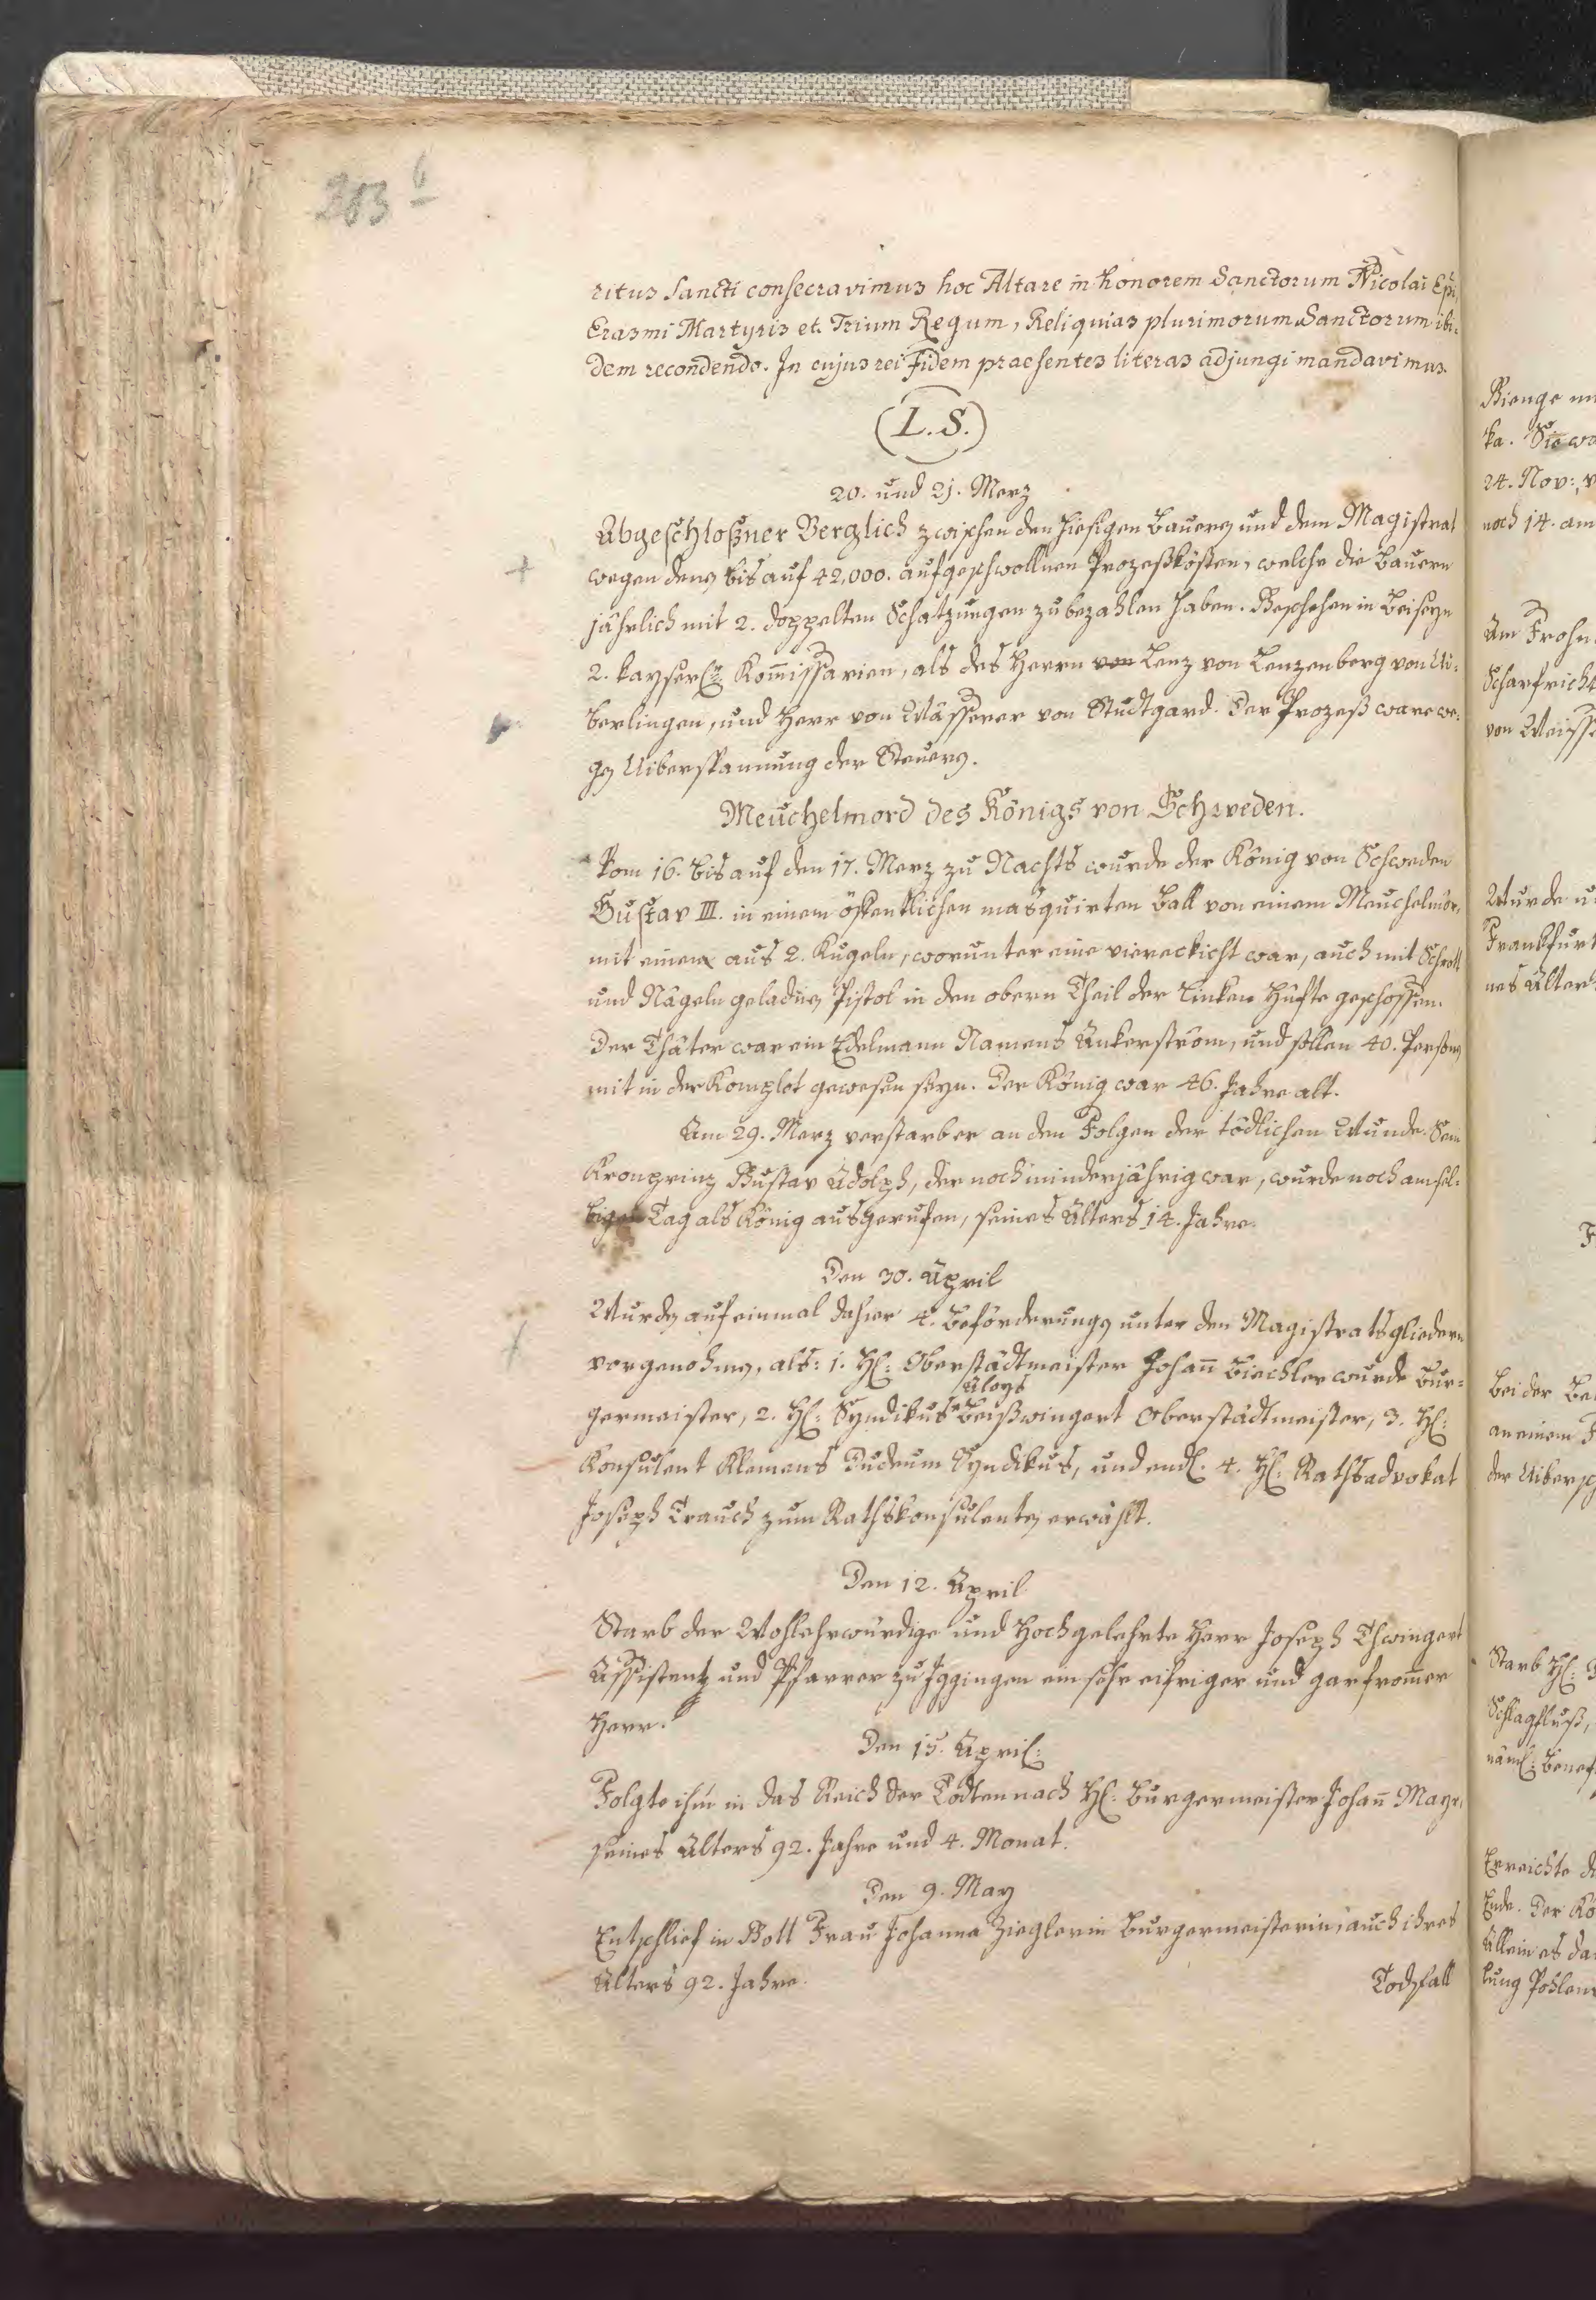 203 b
ritus Sancti consecravimus hoc Altare in honorem Sanctorum Nicolai Epi,
Erasmi Martyris et Trium Regum, Reliquias plurimorum Sanctorum ibi-
dem recondendo. In cujus rei Fidem praesentes literas adjungi mandavimus
(L. S.)
20. und 21. Merz
Abgeschloßner Verglich zwischen den hiesigen Bauern und dem Magistrat
wegen denen bis auf 42,000. aufgeschwollnen Prozeßkösten, welche die Bauern
jährlich mit 2. doppelten Schatzungen zu bezahlen haben. Geschehen in Beiseyn
2. kayserl. Kom̅issarien, als des Herrn von Lenz von Lenzenberg von Ui-
berlingen, und Herr von Wässerer von Studtgard. Der Prozeß ware we-
gen Uiberspannung der Steuern.
Meuchelmord des Königs von Schweden.
Vom 16. bis auf den 17. Merz zu Nachts wurde der König von Schweden
Gustav III. in einem öffentlichen masquirten Ball von einem Meuchelmör.
mit einem aus 2. Kugeln, worunter eine viereckicht war, auch mit Schrott
und Nägeln geladnen Pistol in den obern Theil der linken Hüfte geschossen.
Der Thäter war ein Edelmann Namens Ankerström, und sollen 40. Personen
mit in der Komplot gewesen seyn. Der König war 46. Jahre alt.
Am 29. Merz verstarb er an den Folgen der tödlichen Wunde. Sein
Kronprinz Gustav Adolph, der noch minderjährig war, wurde noch am sel-
bigen Tag als König ausgerufen, seines Alters 14. Jahre.
Den 30. April
Wurden auf einmal dahier 4. Beförderungen unter den Magistratsgliedern
vorgenohmen, als: 1. H: Oberstädtmeister Johan̅ Biechler wurde Bur-
germeister, 2. H: Syndikus Aloys Beißwingert Oberstädtmeister, 3. H:
Konsulent Klemens Dudeum Syndikus, und endl. 4. H: Rathsadvokat
Joseph Trauch zum Rathskonsulenten erwählt.
Den 12. April
Starb der Wohlehrwürdige und Hochgelehrte Herr Joseph Thwingert
Assistent und Pfarrer zu Iggingen ein sehr eifriger und gar from̅er
Herr.
Den 15. April:
Folgte ihm in das Reich der Todten nach H: Burgermeister Johan̅ Mayr,
seines Alters 92. Jahre und 4. Monat.
Den 9. May
Entschlief in Gott Frau Johanna Zieglerin Burgermeisterin, auch ihres
Alters 92. Jahre.
Todsfall
ka. Sie
24. Nov:,
noch 14. am
Am Frohn
Scharfricht
Wurde
Frankfurt
nes Alters
Bei der
an einem
Starb H:
Schlagfluß,
näml:
Erreichte
Ende. Der Kö
Allein es
lung Pohlens